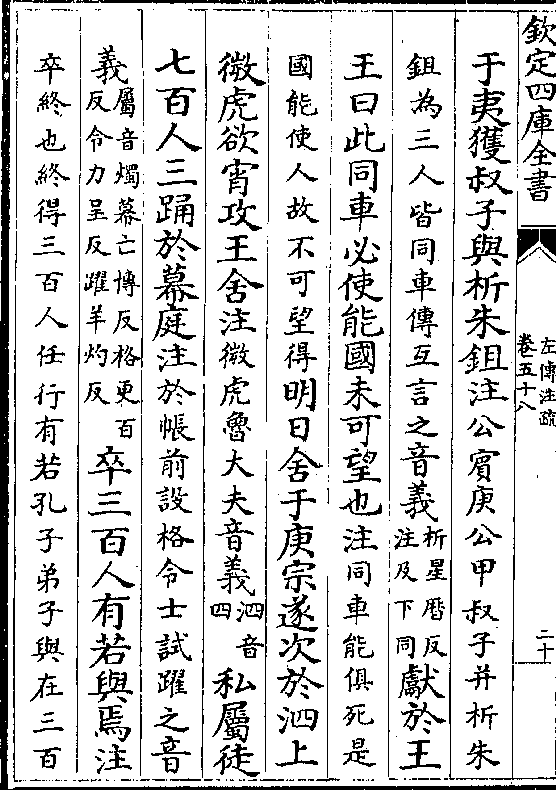 欽定四庫全書
左傳注疏
卷五十八
二十
于夷獲叔子與析朱鉏注公賓庚公甲叔子并析朱
鉏為三人皆同車傳互言之音義析星厯反注及下同獻於王
王曰此同車必使能國未可望也注同車能俱死是
國能使人故不可望得明日舍于庚宗遂次於泗上
微虎欲宵攻王舍注微虎魯大夫音義泗音四私屬徒
七百人三踊於幕庭注於帳前設格令士試躍之音
義屬音燭幕亡博反格更百反令力呈反躍羊灼反卒三百人有若與焉注
卒終也終得三百人任行有若孔子弟子與在三百